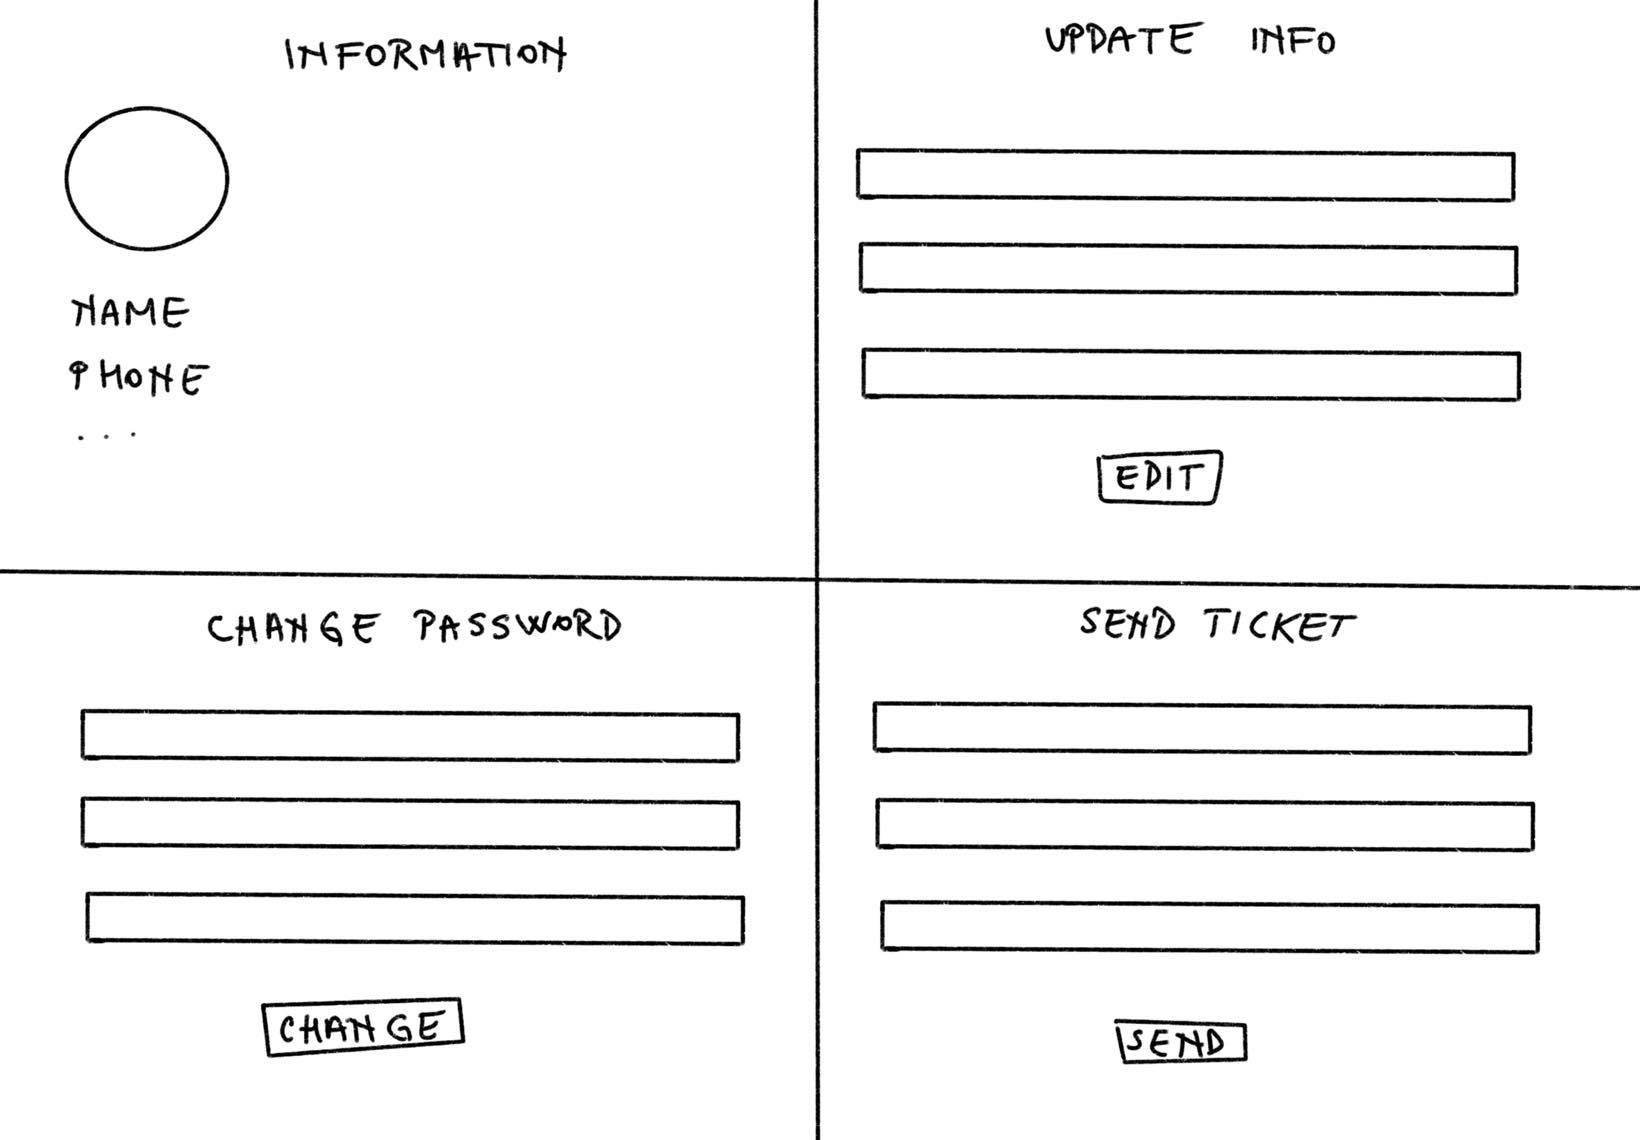 INFORMATION
NAME
PHONE
...
UPDATE INFO
EDIT
CHANGE PASSWORD
CHANGE
SEND TICKET
SEND